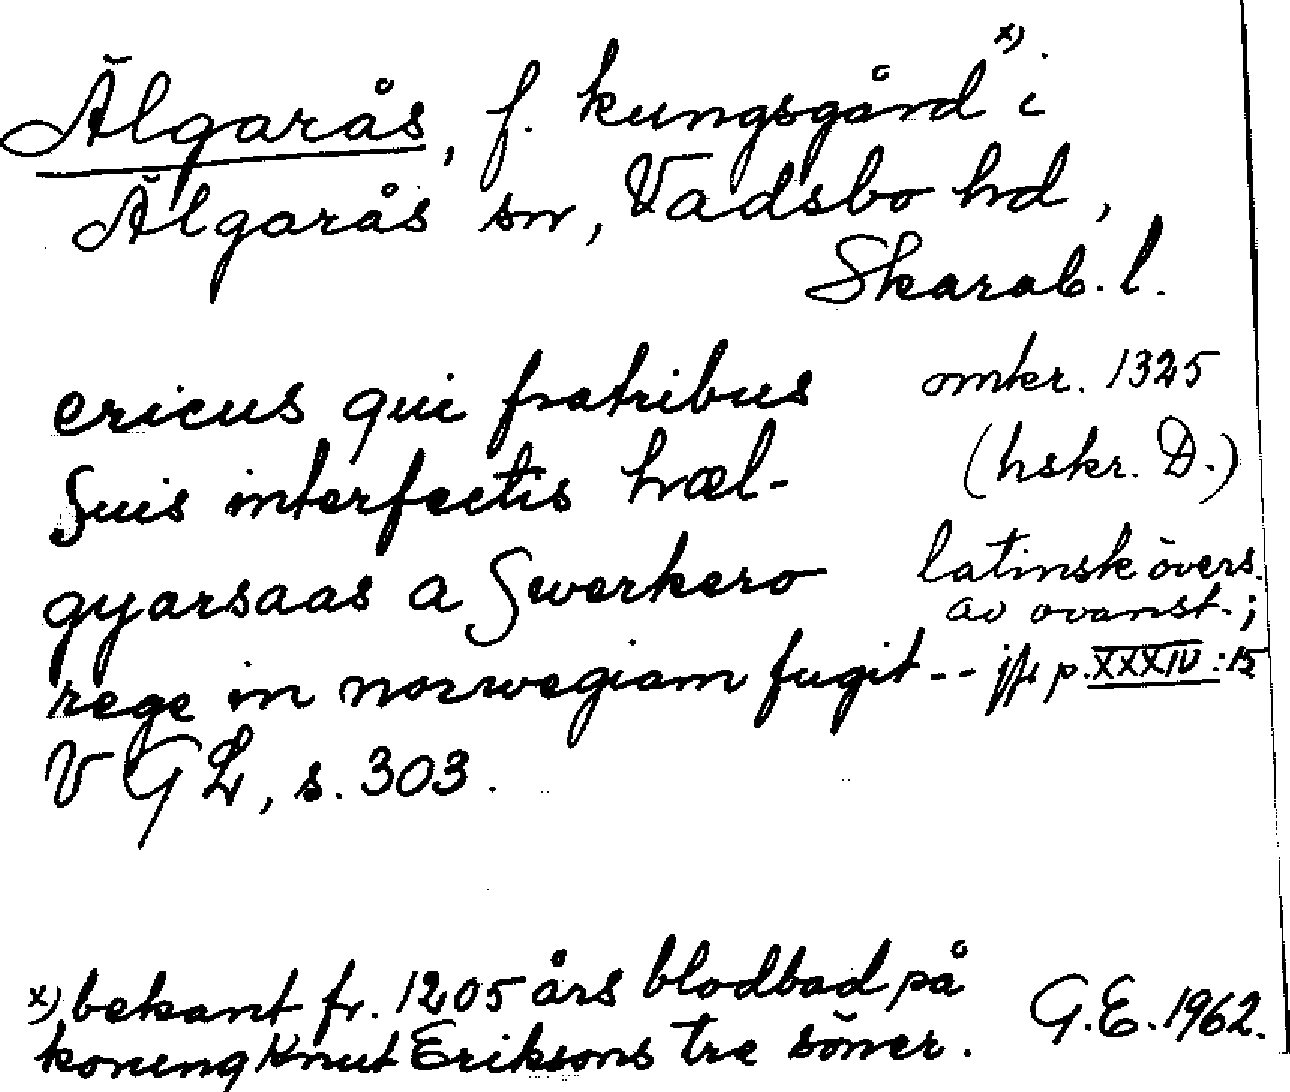 Älgarås, f. kungsgård x) i
Älgarås sn, Vadsbo hd,
Skarab. l.
ericus qui fratribus
suis interfectis hæl-
gyarsaas a Swerkero
rege in norwegiam fugit --
VGL, s. 303.
omkr. 1325
(hskr. D.)
latinsk övers.
av ovanst.;
jfr p. XXXIV:15
x) bekant fr. 1205 års blodbad på
konung Knut Eriksons tre söner.
G.E. 1962.